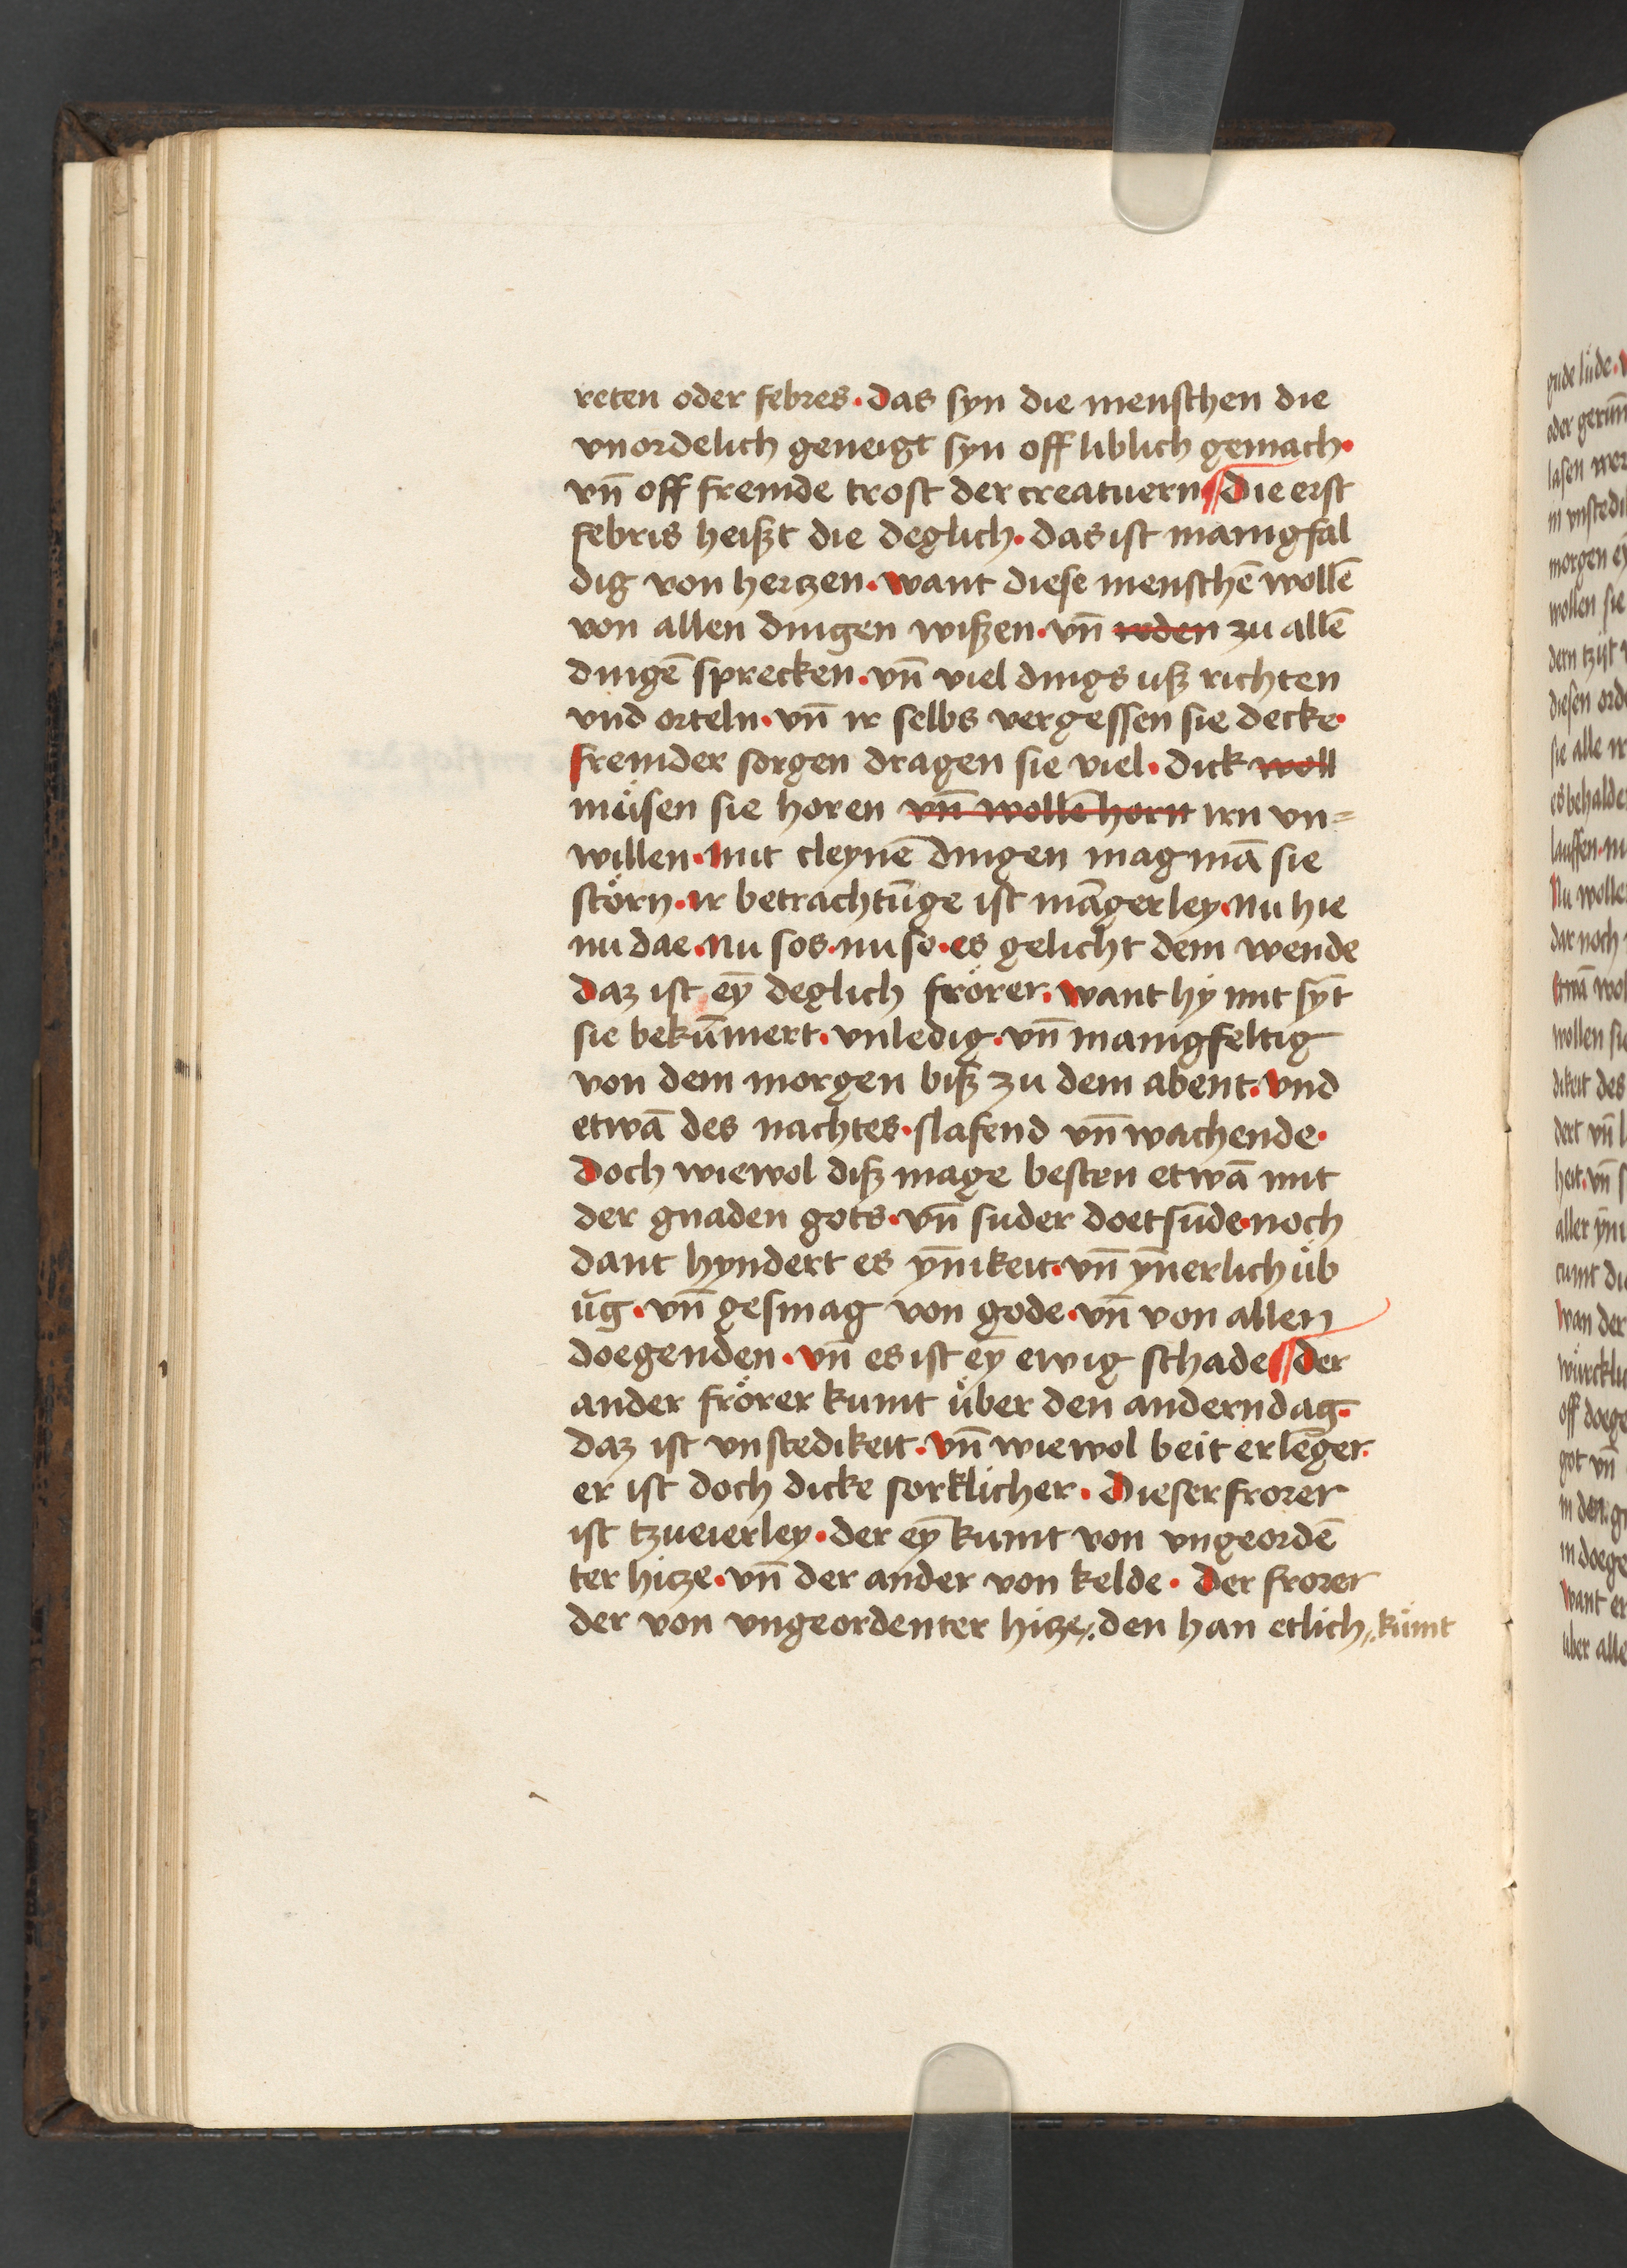 reten oder febres · das syn die menschen die
vnordelich geneigt syn off liblich gemach ·
vn̄ off fremde trost der creatuern ¶ Die erst
febris heißt die deglich · das ist manigfal
dig von hertzen · want diese menschē wollē
von allen dingen wißen · vn̄ reden zu allē
dingē sprecken · vn̄ viel dings uß richten
vnd orteln · vn̄ ir selbs vergessen sie decke ·
fremder sorgen dragen sie viel · dick woll
müsen sie horen vn̄ wollē horn irn vn=
willen · Mit cleynē dingen mag mā sie
störn · ir betrachtūge ist māgerley · Nu hie
nu dae · Nu sos · nu so · es gelicht dem wende
Daz ist eȳ deglich frörer · want hÿ mit syt
sie bekūmert · vnledig · vn̄ manigfeltig
von dem morgen biß zu dem abent · vnd
etwā des nachtes · slafend vn̄ wachende ·
Doch wiewol diß mage besten etwā mit
der gnaden gots · vn̄ suder doetsūde · noch
dant hyndert es yn̄ikeit · vn̄ yn̄erlich üb
ūg · vn̄ gesmag von gode · vn̄ von allen
doegenden · vn̄ es ist eȳ ewig schade ¶ der
ander frörer kumt über den andern dag ·
daz ist vnstedikeit · vn̄ wiewol beit erlēger ·
er ist doch dicke sorklicher · Dieser frorer
ist tzueierley · der eȳ kumt von vngeordē
ter hitze · vn̄ der ander von kelde · Der frorer
der von vngeordenter hitze, den han etlich, kümt
gude lüde ·
oder
lasen
in
morgen
wollen sie
dern tzijt
diesen
sie alle
es
lauffen ·
Nu
dar noch
Etwā
wollen
dikeit des
dert vn̄
heit · vn̄
aller
cumt
Wan der
off
got vn̄
in den
in
Want er
über